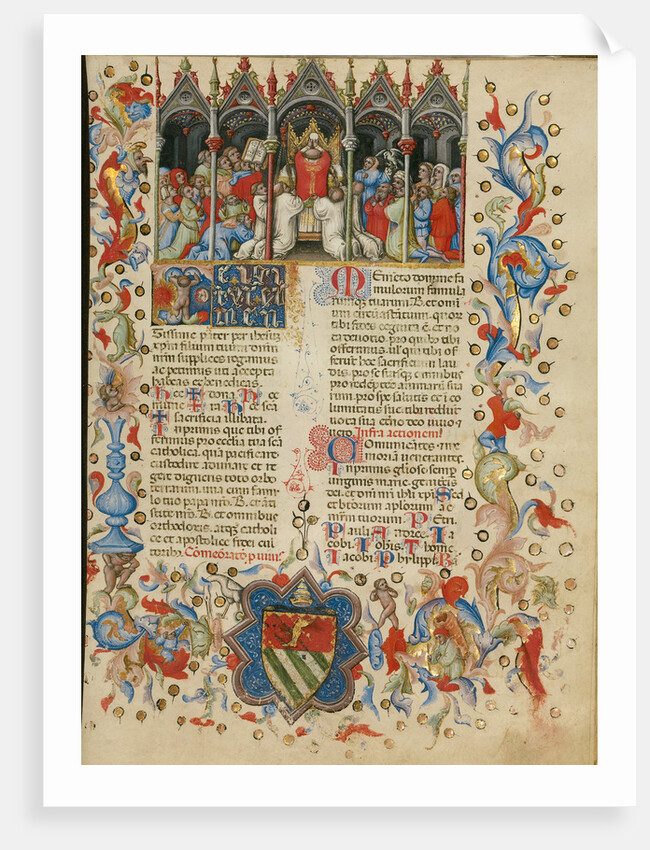 Te igitur clemen
tissime pater per ihesum
xpm filium tuum dnm
nrm supplices rogamus
ac petimus uti accepta
habeas et benedicas.
hec ✝ dona hec
munera hec sca
sacrificia illibata.
Inprimis que tibi of
ferimus pro ecclia tua sca
catholica. qua pacificare
custodire adunare et re
gere digneris toto orbe
terrarum. una cum famu
lo tuo papa nro. B. et an
tistite nro. B. et omnibus
orthodoxis. atque catholi
ce et apostolice fidei cul
toribus. Comemoratio p uiuis
Memeto domine fa
mulorum famula
rumque tuarum B. et omni
um circumastantium. quorum
tibi fides cognita est. et no
ta deuotio. pro quibus tibi
offerimus. uel qui tibi of
ferunt hoc sacrificium lau
dis. pro se suisque omnibus
pro redemptione animarum sua
rum. pro spe salutis et in
columitatis sue. tibi reddunt
uota sua eterno deo uiuo et
uero. Infra actionem
Comunicantes et me
moriam uenerantes.
Inprimis gliose semper
uirginis marie. genitricis
dei. et dni nri ihu xpi. Sed
et btorum aplorum ac
mrm tuorum Petri
Pauli Andree Ia
cobi Iohis Thome
Iacobi Phylippi Ba